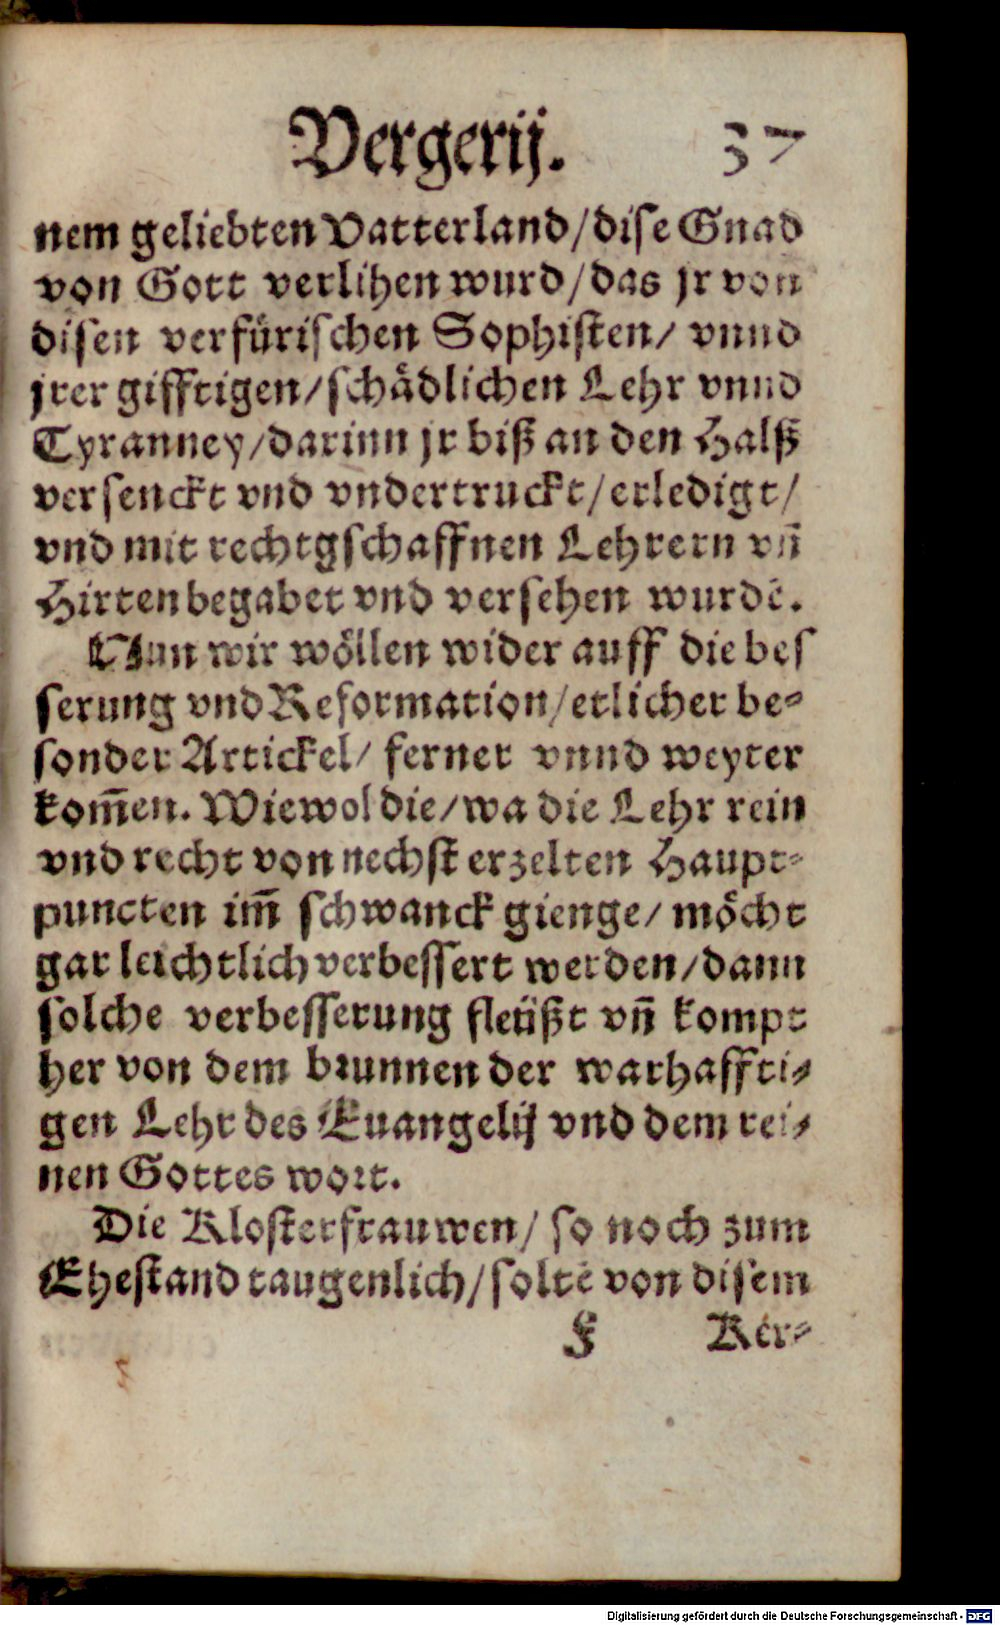 Vergerij. 37
nem geliebten Vatterland/dise Gnad
von Gott verlihen wurd/das jr von
disen verfürischen Sophisten/ vnnd
jrer gifftigen/schådlichen Lehr vnnd
Tyranney/darinn jr biß an den Halß
versenckt vnd vndertruckt/erledigt/
vnd mit rechtgschaffnen Lehrern vñ
Hirten begabet vnd versehen wurdē.
Nun wir wöllen wider auff die bes
serung vnd Reformation/etlicher be-
sonder Artickel/ ferner vnnd weyter
kom̃en. Wiewol die/wa die Lehr rein
vnd recht von nechst erzelten Haupt-
puncten im̃ schwanck gienge/ möcht
gar leichtlich verbessert werden/dann
solche verbesserung fleüßt vñ kompt
her von dem brunnen der warhaffti-
gen Lehr des Euangelij vnd dem rei-
nen Gottes wort.
Die Klosterfrauwen/ so noch zum
Ehestand taugenlich/soltē von disem
F Ker-
Digitalisierung gefördert durch die Deutsche Forschungsgemeinschaft - DFG